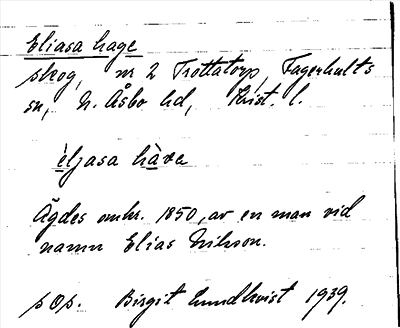 Eliasa hage
skog, nr 2 Trottatorp, Fagerhults
sn, N. Åsbo hd, Krist. l.
èljasa hàva
Ägdes omkr. 1850, av en man vid
namn Elias Nilsson.
s O s. Birgit Lundkvist 1939.